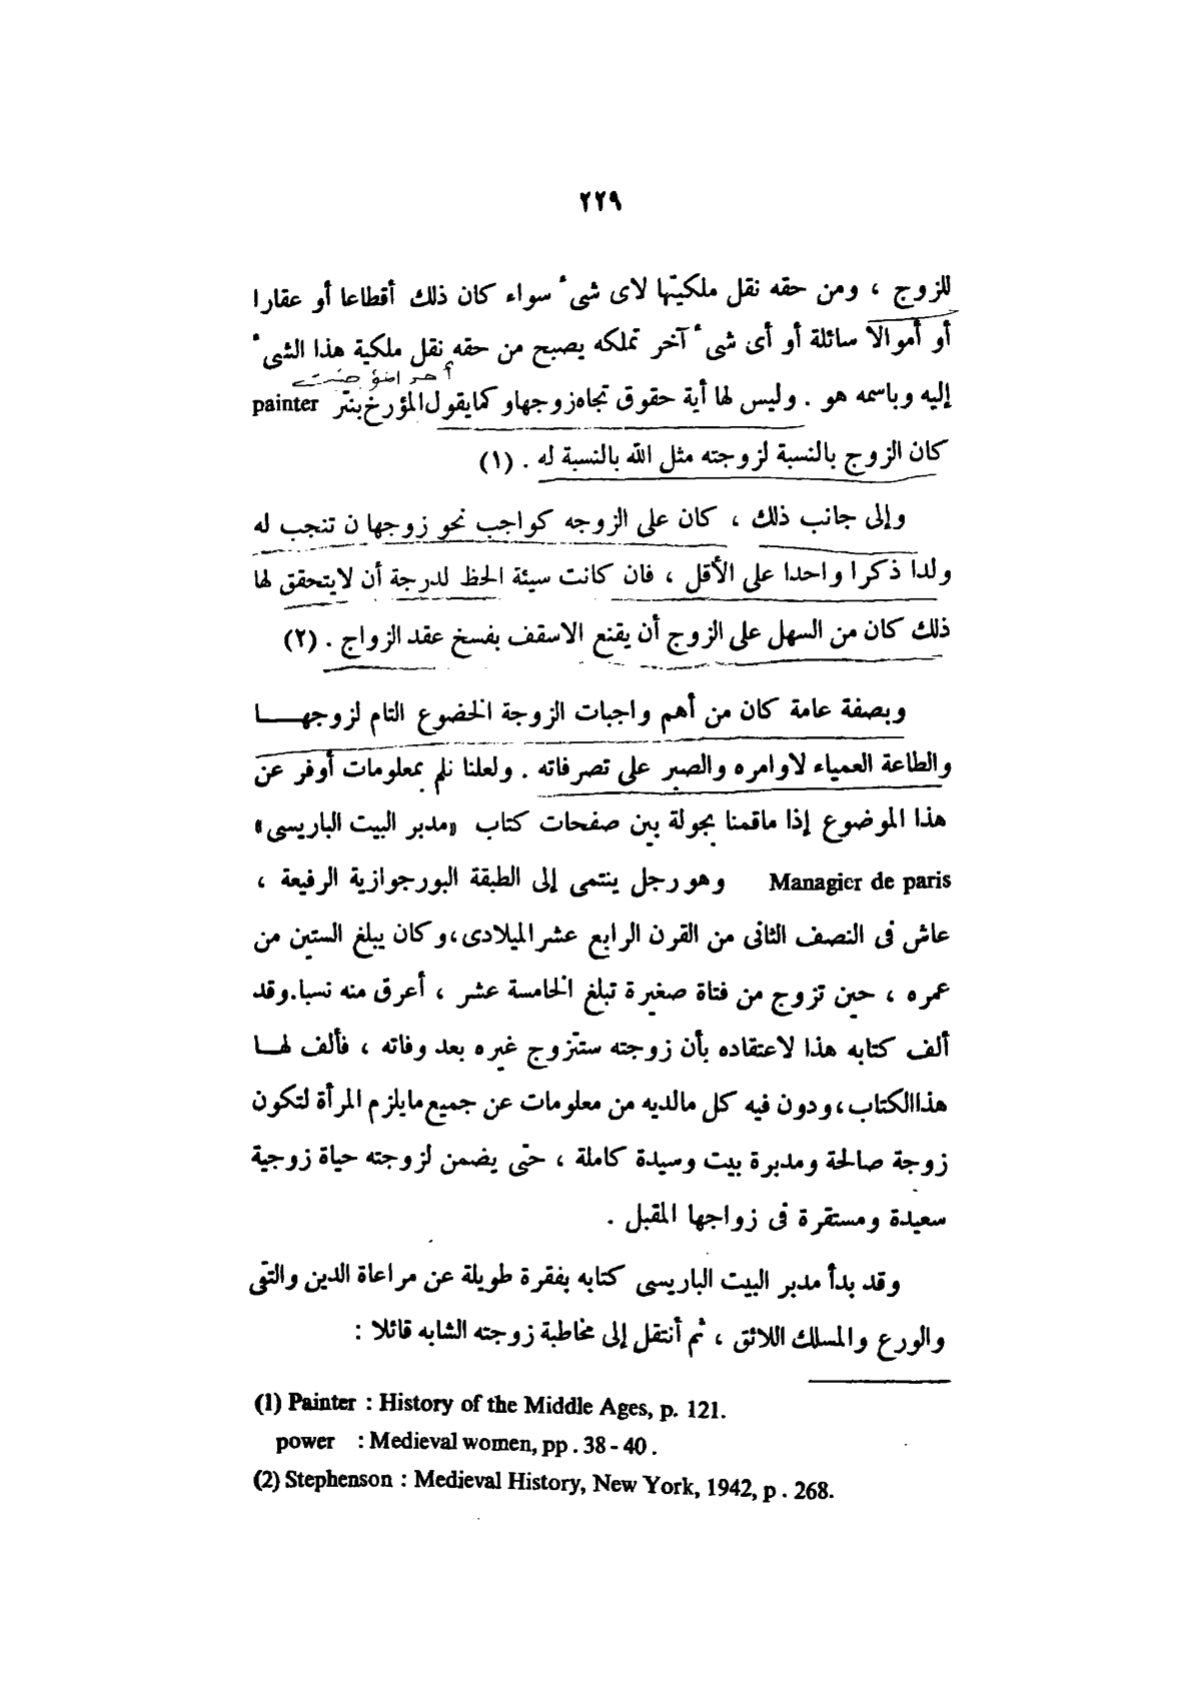 ٢٢٩
للزوج ، ومن حقه نقل ملكيتها لاى شىء سواء كان ذلك أقطاعا أو عقارا
أو أموالا سائلة أو أى شىء آخر تملكه يصبح من حقه نقل ملكية هذا الشىء
إليه وباسمه هو . وليس لها أية حقوق تجاه زوجها وكما يقول المؤرخ بنتر painter
كان الزوج بالنسبة لزوجته مثل الله بالنسبة له . (١)
وإلى جانب ذلك ، كان على الزوجه كواجب نحو زوجها ن تنجب له
ولدا ذكرا واحدا على الأقل ، فان كانت سيئة الحظ لدرجة أن لايتحقق لها
ذلك كان من السهل على الزوج أن يقنع الاسقف بفسخ عقد الزواج . (٢)
وبصفة عامة كان من أهم واجبات الزوجة الخضوع التام لزوجهــــا
والطاعة العمياء لاوامره والصبر على تصرفاته . ولعلنا نلم بمعلومات أوفر عن
هذا الموضوع إذا ماقمنا بجولة بين صفحات كتاب «مدبر البيت الباريسى»
Managier de paris وهو رجل ينتمى إلى الطبقة البورجوازية الرفيعة ،
عاش فى النصف الثانى من القرن الرابع عشر الميلادى، وكان يبلغ الستين من
عمره ، حين تزوج من فتاة صغيرة تبلغ الخامسة عشر ، أعرق منه نسبا. وقد
ألف كتابه هذا لاعتقاده بأن زوجته ستتزوج غيره بعد وفاته ، فألف لهــا
هذا الكتاب، ودون فيه كل مالديه من معلومات عن جميع مايلزم المرأة لتكون
زوجة صالحة ومدبرة بيت وسيدة كاملة ، حتى يضمن لزوجته حياة زوجية
سعيدة ومستقرة فى زواجها المقبل .
وقد بدأ مدبر البيت الباريسى كتابه بفقرة طويلة عن مراعاة الدين والتقى
والورع والمسلك اللائق ، ثم أنتقل إلى مخاطبة زوجته الشابه قائلا :
(1) Painter : History of the Middle Ages, p. 121.
power : Medieval women, pp . 38 - 40 .
(2) Stephenson : Medieval History, New York, 1942, p . 268.